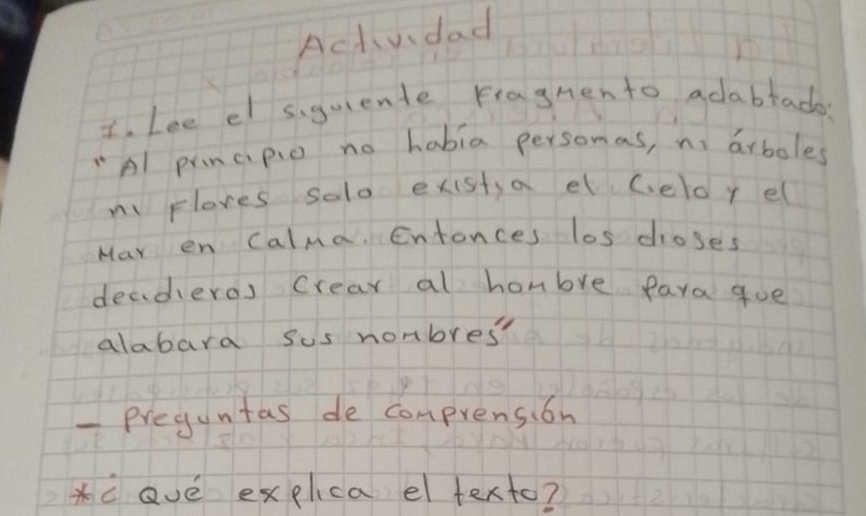 Actividad
1. Lee el siguiente Fragmento adabtado:
"Al principio no había personas, ni árboles
ni Flores solo existia el Cielo y el
Mar en Calma. Entonces los dioses
decidieros Crear al hombre Para que
alabara sus nombres"
- Preguntas de Comprensión
*¿Qué explica el texto?